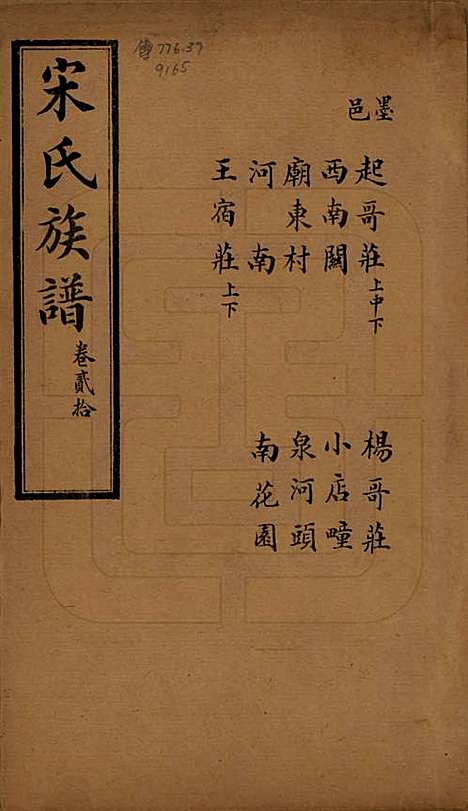 宋氏族譜
卷貳拾
傳776.39
9165
墨邑
起哥莊上中下
楊哥莊
西南關
小店疃
廟東村
泉河頭
河南
南花園
王宿莊上下